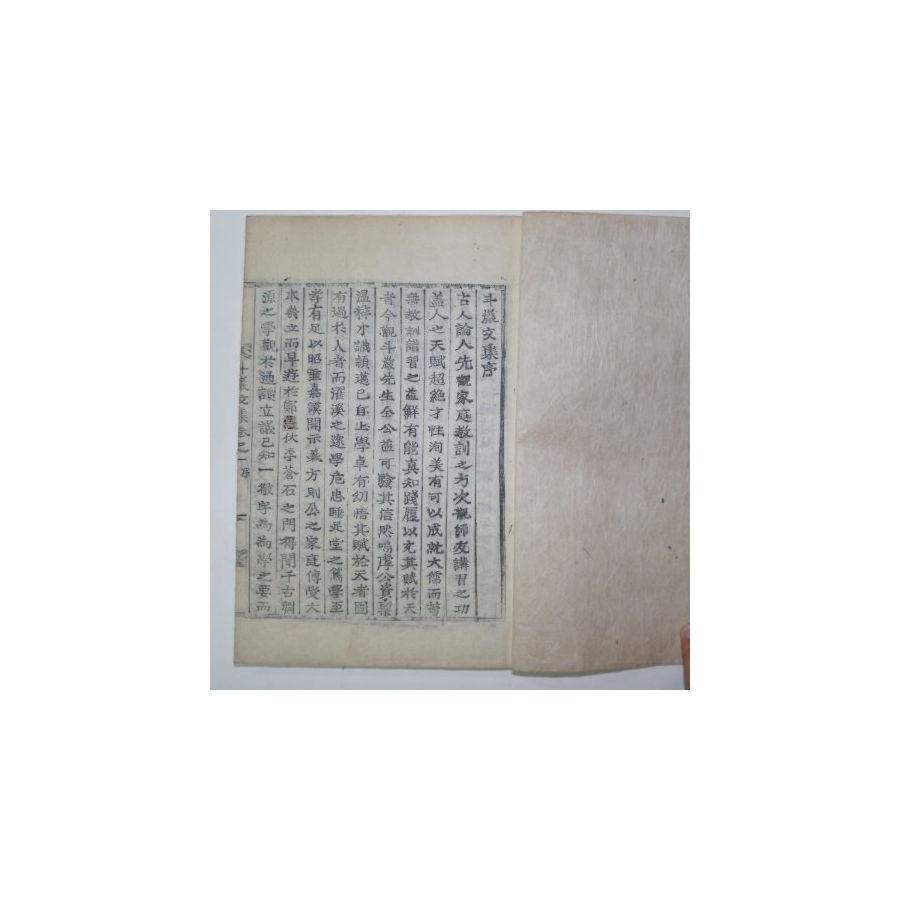 斗巖文集序
古人論人先觀家庭教訓之方次觀師友講習之功
蓋人之天賦超絶才性洵美有可以成就大儒而苟
無教訓講習之益鮮有能真知踐履以充其賦於天
者今觀斗巖先生全公益可驗其信然嗚虖公資稟
溫粹才識穎邁已自上學卓有幼悟其賦於天者固
有過於人者而濯溪之邃學危忠睡足堂之篤學至
孝有足以昭垂嘉謨開示義方則公之家庭傳受大
本旣立而早遊於鄭愚伏李蒼石之門得聞千古淵
源之學觀於通讀立議已知一敬字為為學之要而
斗巖文集卷之一 序